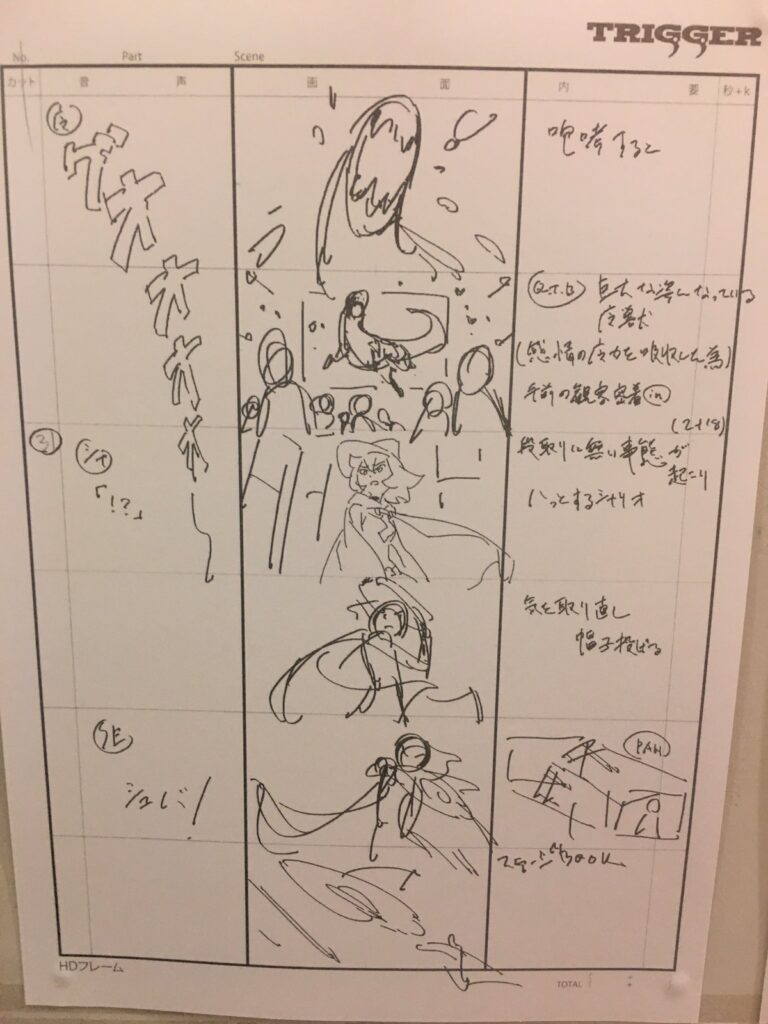 TRIGGER
No. Part Scene
カット 音 声 画 面 内 要 秒+k
ギャオオオオ
咆哮すると
Q.T.B 巨大な姿になっている
魔獣
(感情の魔力を吸収した為)
手前の観客密着 in
(2+18)
段取りに無い事態が
起こり
シャ
「!?」
ハッとするシャリオ
気を取り直し
帽子投げる
SE
シュバ!
PAN
HDフレーム
TOTAL +